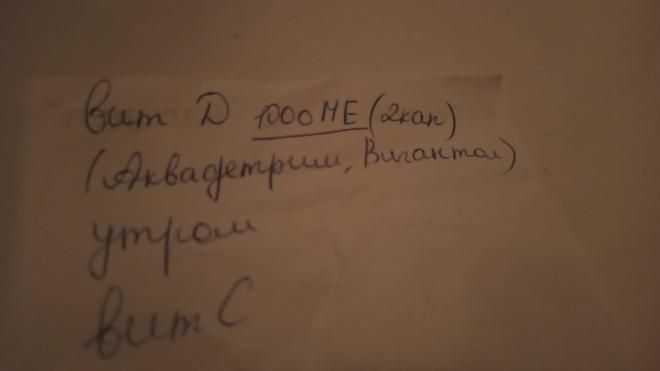 вит Д 1000 МЕ (2кап)
(Аквадетрим, Вигантол)
утром
вит С